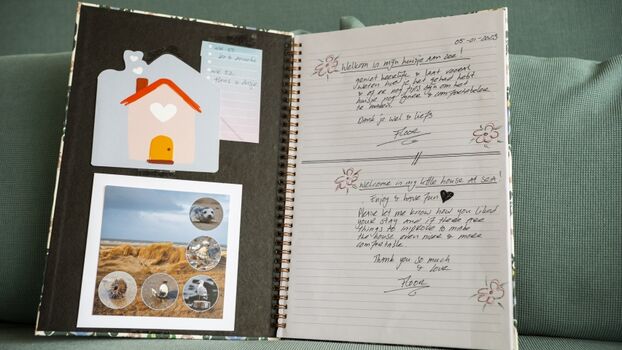 05-01-2023
Welkom in mijn huisje aan zee!
geniet heerlijk & laat vooral
weten hoe je het gehad hebt
& of er nog tips zijn om het
huisje nog fijner & comfortabeler
te maken.
Dank je wel & liefs
Floor
Welcome in my little house at SEA!
Enjoy & have fun
Please let me know how you liked
your stay and if there are
things to improve to make
the house even more & more
comfortable
Thank you so much
& love
Floor